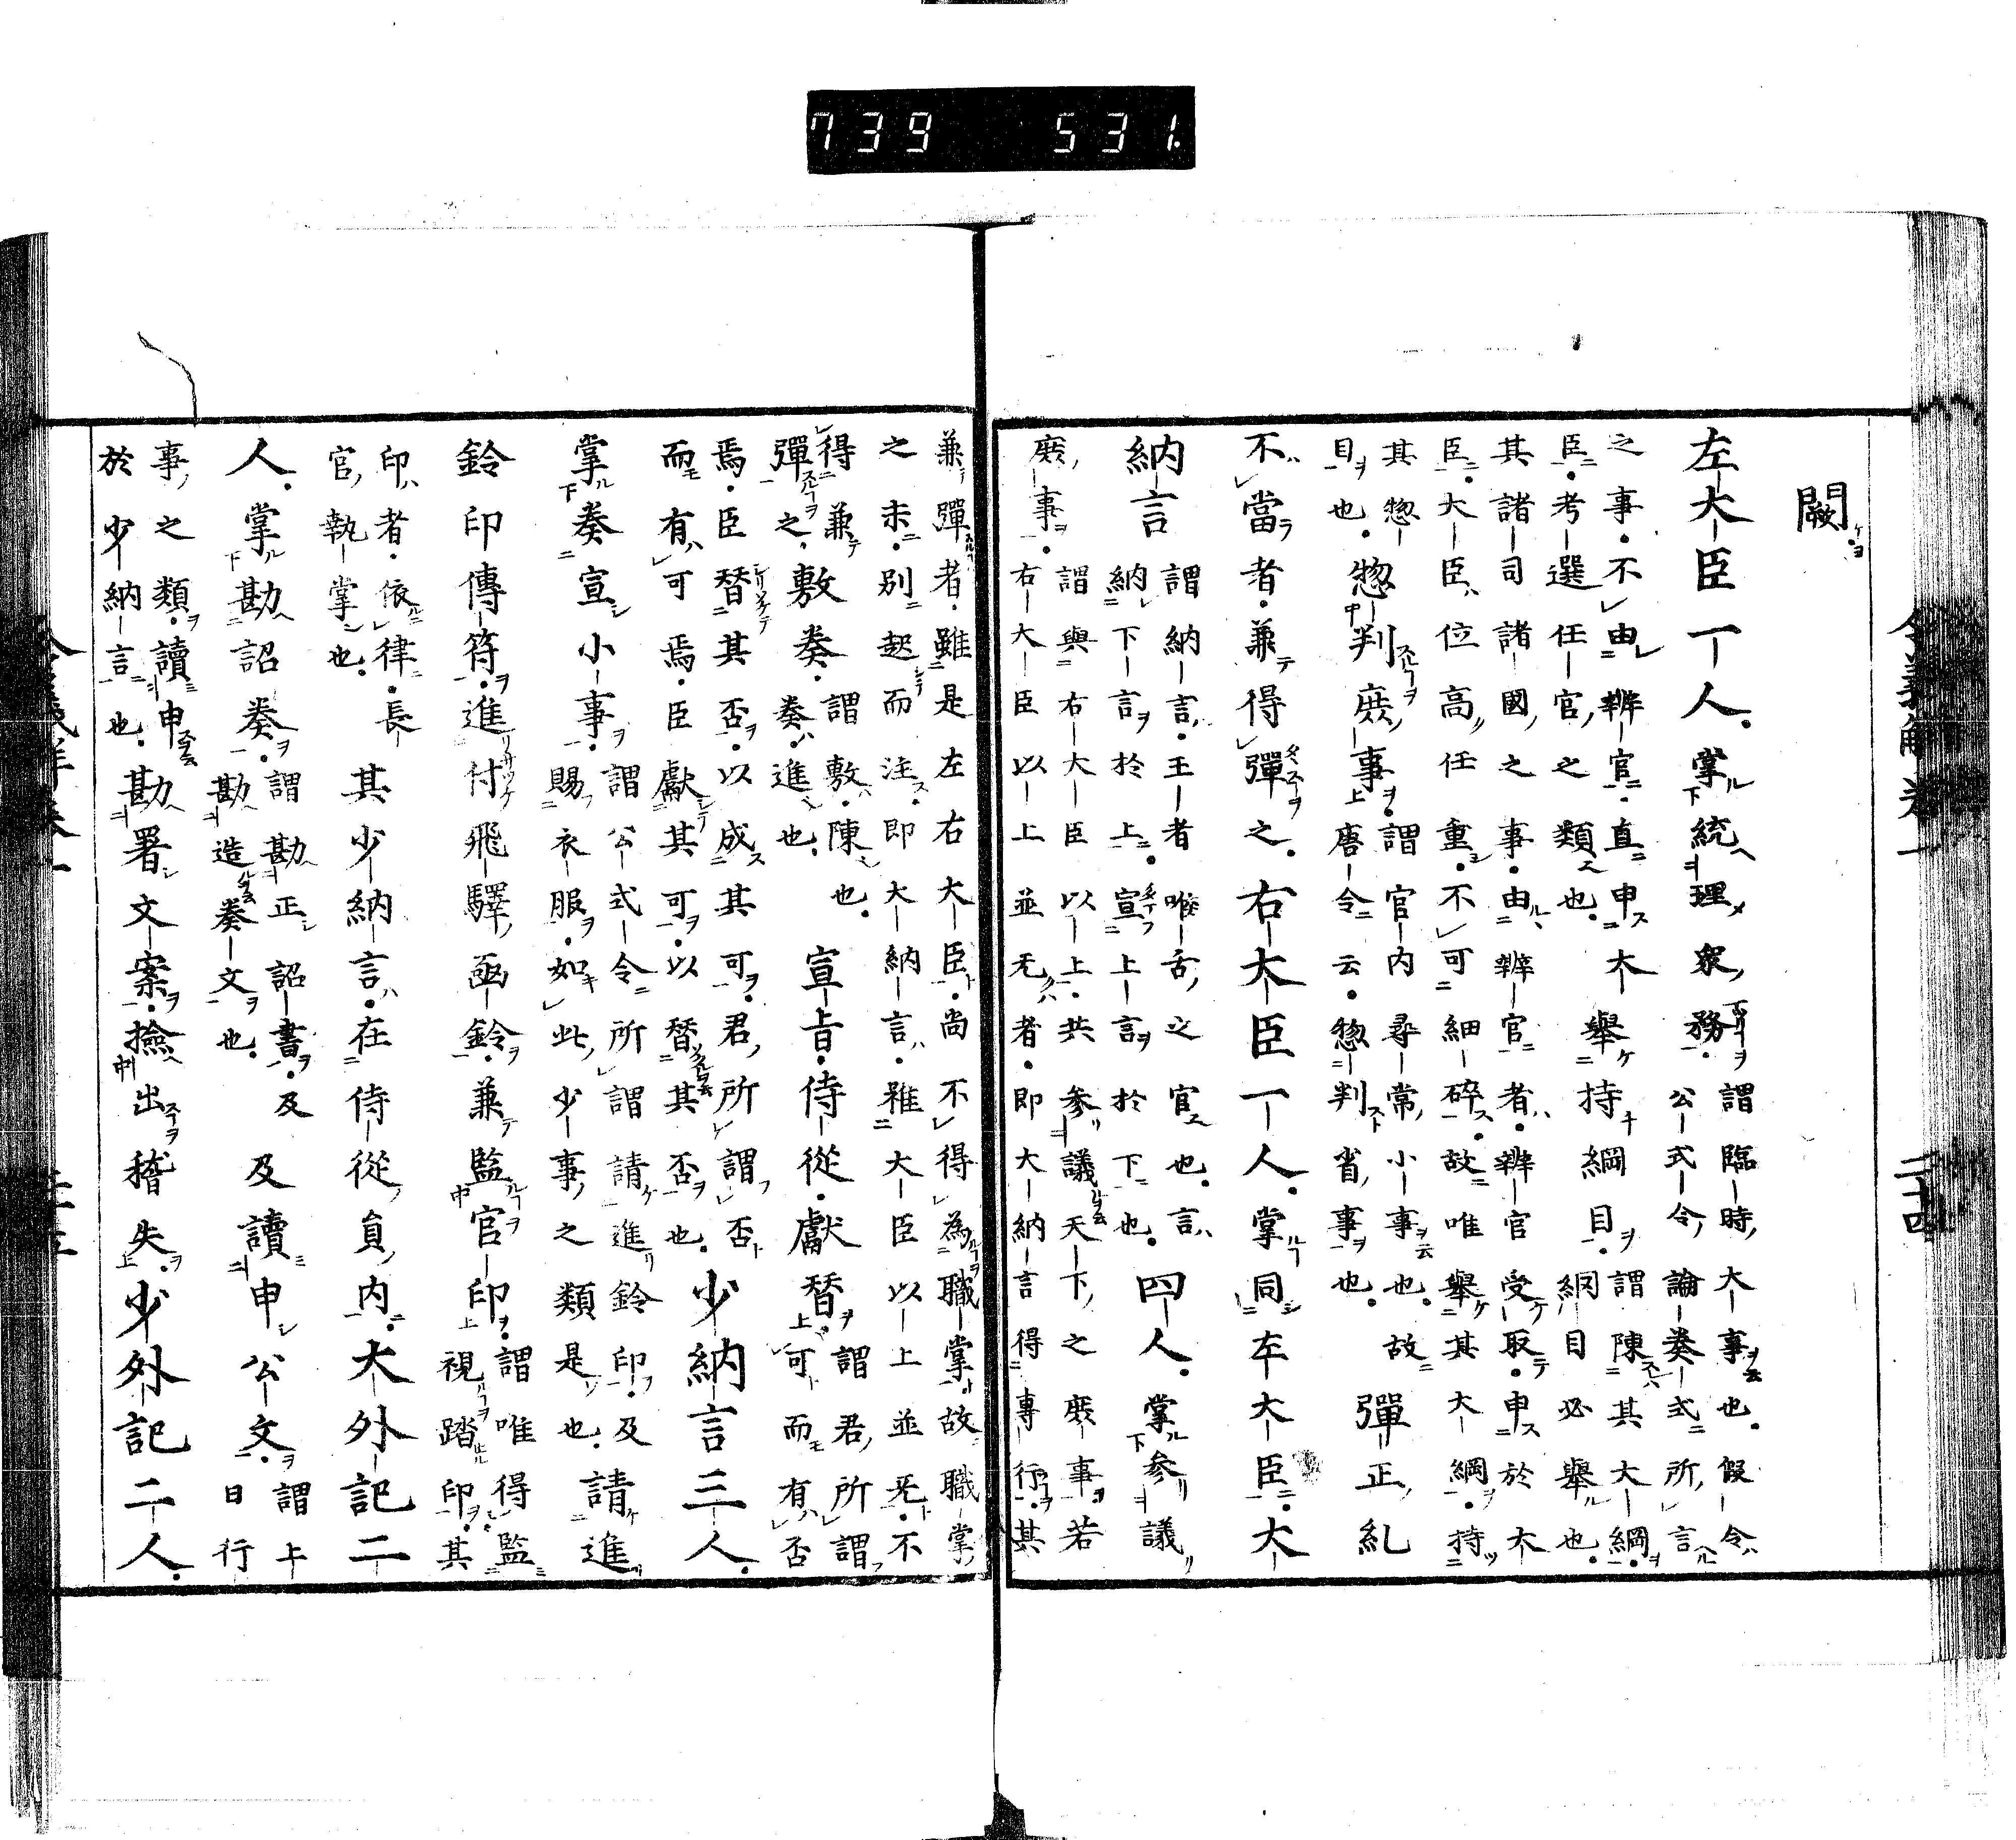 739 531.
令義解卷一 二十四
闕
左大臣一人。掌統理衆務。
謂臨時大事也。假令
公式令論奏式所言
之事。不由辨官。直申太
臣。考選任官之類也。
舉持綱目。
謂陳其大綱。
綱目必舉也。
其諸司諸國之事。由辨官者。辨官受取。申於太
臣。大臣位高任重。不可細碎。故唯舉其大綱。持
其惣
目也。
惣判庶事。
謂官内尋常小事也。故
唐令云。惣判省事也。
彈正糺
不當者。兼得彈之。右大臣一人。掌同左大臣。大
納言
謂納言。王者喉舌之官也。言
納下言於上。宣上言於下也。
四人。掌參議
庶事。
謂與右大臣以上。共參議天下之庶事。若
右大臣以上並无者。即大納言得專行。其
兼彈者。雖是左右大臣。尚不得為職掌。故職掌
之末。別起而注。即大納言。雖大臣以上並无。不
得兼
彈之。
敷奏。
謂敷。陳也。
奏。進也。
宣旨。侍從。獻替。
謂君所謂
可而有否
焉。臣替其否。以成其可。君所謂否
而有可焉。臣獻其可。以替其否也。
少納言三人。
掌奏宣小事。
謂公式令所謂請進鈴印。及
賜衣服。如此少事之類是也。
請進
鈴印傳符。進付飛驛凾鈴。兼監官印。
謂唯得監
視踏印。其
印者。依律。長
官執掌也。
其少納言。在侍從員内。大外記二
人。掌勘詔奏。
謂勘正詔書。及
勘造奏文也。
及讀申公文。
謂上
日行
事之類。讀申
於少納言也。
勘署文案。撿出稽失。少外記二人。